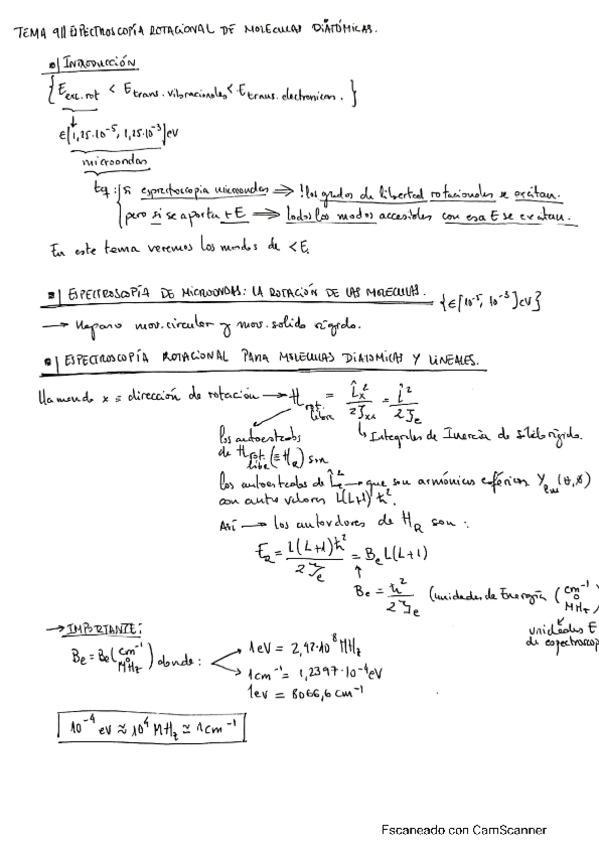 TEMA 9|| ESPECTROSCOPÍA ROTACIONAL DE MOLECULAS DIATÓMICAS.
INTRODUCCIÓN
{E exc. rot < E trans. vibracionales < E trans. electronicas.}
∈[1,25·10⁻⁵, 1,25·10⁻³]eV
microondas
tq: si espectroscopia microondas ⟹ !los grados de libertad rotacionales se excitan.
pero si se aporta +E ⟹ todos los modos accesibles con esa E se excitan.
En este tema veremos los modos de <E.
ESPECTROSCOPÍA DE MICROONDAS: LA ROTACIÓN DE LAS MOLECULAS. {∈[10⁻⁵, 10⁻³]eV}
→ Repaso mov. circular y mov. solido rígido.
ESPECTROSCOPÍA ROTACIONAL PARA MOLECULAS DIATOMICAS Y LINEALES.
llamando x ≡ dirección de rotación → H rot. libre = L̂ₓ²/2Jₓₓ = L̂²/2Jₑ
los autoestados ↳ Integrales de Inercia de sólido rígido.
de H rot. libre (≡ H_R) son
los autoestados de L̂² → que son armónicos esféricos Y_lm(θ,φ)
con autovalores L(L+1)ħ².
Así → los autovalores de H_R son:
E_R = L(L+1)ħ²/2Jₑ = Bₑ L(L+1)
Bₑ = ħ²/2Jₑ (unidades de Energía (cm⁻¹ o MHz)
unidades E
de espectroscop
→ IMPORTANTE:
Bₑ = Bₑ(cm⁻¹ o MHz) donde:
1eV = 2,42·10⁸ MHz
1cm⁻¹ = 1,2397·10⁻⁴eV
1eV = 8066,6 cm⁻¹
10⁻⁴ eV ≈ 10⁴ MHz ≃ 1cm⁻¹
Escaneado con CamScanner